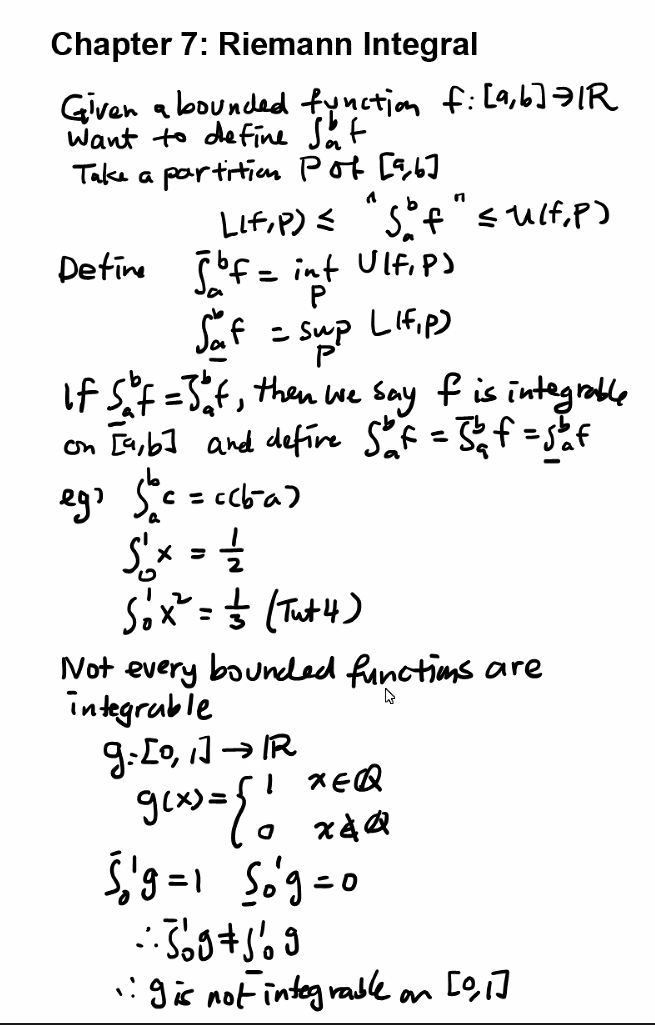 Chapter 7: Riemann Integral
Given a bounded function f: [a,b] → ℝ
Want to define ∫ₐᵇ f
Take a partition P of [a,b]
L(f,P) ≤ "∫ₐᵇ f" ≤ U(f,P)
Define ∫̅ₐᵇ f = inf_P U(f,P)
∫̲ₐᵇ f = sup_P L(f,P)
If ∫̲ₐᵇ f = ∫̅ₐᵇ f, then we say f is integrable
on [a,b] and define ∫ₐᵇ f = ∫̅ₐᵇ f = ∫̲ₐᵇ f
eg) ∫ₐᵇ c = c(b-a)
∫₀¹ x = 1/2
∫₀¹ x² = 1/3 (Tut 4)
Not every bounded functions are
integrable
g: [0,1] → ℝ
g(x) = { 1 x ∈ ℚ
0 x ∉ ℚ
∫̅₀¹ g = 1 ∫̲₀¹ g = 0
∴ ∫̅₀¹ g ≠ ∫̲₀¹ g
∴ g is not integrable on [0,1]